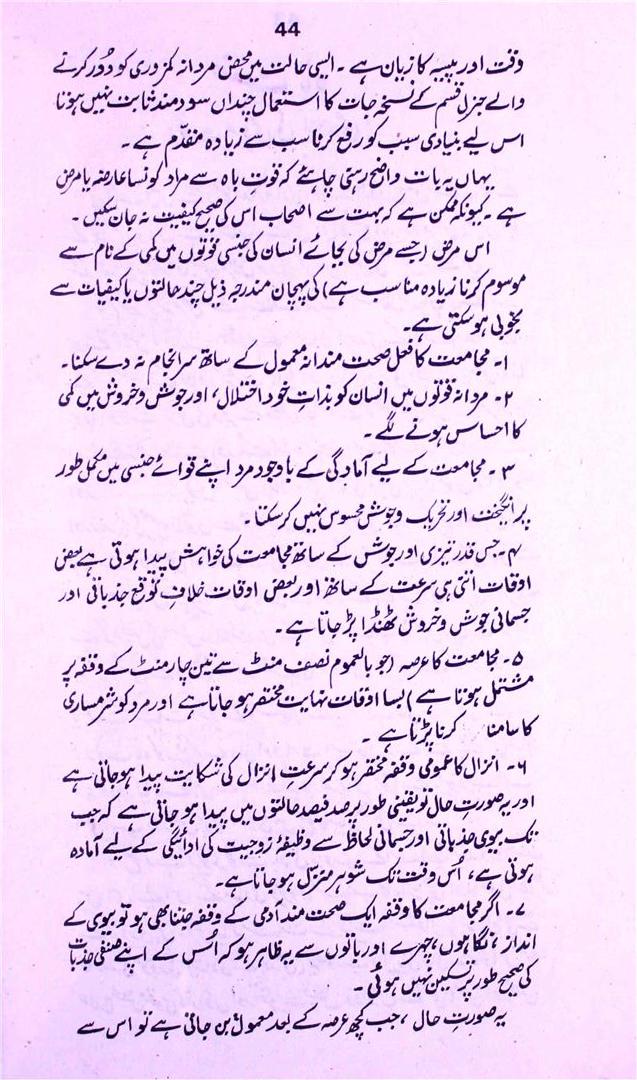 44
وقت اور پیسہ کا زیان ہے ۔ ایسی حالت میں محض مردانہ کمزوری کو دُور کرنے
والے جنرل قسم کے نسخہ جات کا استعمال چنداں سود مند ثابت نہیں ہوتا
اس لیے بنیادی سبب کو رفع کرنا سب سے زیادہ مقدّم ہے ۔
یہاں یہ بات واضح رہنی چاہئے کہ قوت باہ سے مراد کونسا عارضہ یا مرض
ہے ۔ کیونکہ ممکن ہے کہ بہت سے اصحاب اس کی صحیح کیفیت نہ جان سکیں ۔
اس مرض (جسے مرض کی بجائے انسان کی جنسی قوتوں میں کمی کے نام سے
موسوم کرنا زیادہ مناسب ہے) کی پہچان مندرجہ ذیل چند حالتوں یا کیفیات سے
بخوبی ہو سکتی ہے۔
۱۔ مجامعت کا فعل صحت مندانہ معمول کے ساتھ سرانجام نہ دے سکنا ۔
۲۔ مردانہ قوتوں میں انسان کو بذاتِ خود اختلال، اور جوش و خروش میں کمی
کا احساس ہونے لگے ۔
۳۔ مجامعت کے لیے آمادگی کے باوجود مرد اپنے قوائے جنسی میں مکمل طور
برانگیخت اور تحریک و جوش محسوس نہیں کر سکتا ۔
۴۔ جس قدر تیزی اور جوش کے ساتھ مجامعت کی خواہش پیدا ہوتی ہے بعض
اوقات اتنی ہی سرعت کے ساتھ اور بعض اوقات خلافِ توقع جذباتی اور
جسمانی جوش و خروش ٹھنڈا پڑ جاتا ہے ۔
۵۔ مجامعت کا عرصہ (جو بالعموم نصف منٹ سے تین چار منٹ کے وقفہ پر
مشتمل ہوتا ہے) بسا اوقات نہایت مختصر ہو جاتا ہے اور مرد کو شرمساری
کا سامنا کرنا پڑتا ہے ۔
۶۔ انزال کا عمومی وقفہ مختصر ہو کر سرعتِ انزال کی شکایت پیدا ہو جاتی ہے
اور یہ صورتِ حال تو یقینی طور پر صد فیصد حالتوں میں پیدا ہو جاتی ہے کہ جب
تک بیوی جذباتی اور جسمانی لحاظ سے وظیفۂ زوجیت کی ادائیگی کے لیے آمادہ
ہوتی ہے، اُس وقت تک شوہر منزل ہو جاتا ہے۔
۷۔ اگر مجامعت کا وقفہ ایک صحت مند آدمی کے وقفہ جتنا بھی ہو تو بیوی کے
انداز، نگاہوں، چہرے اور باتوں سے یہ ظاہر ہو کہ اُس کے اپنے صنفی جذبات
کی صحیح طور پر تسکین نہیں ہوئی ۔
یہ صورتِ حال، جب کچھ عرصہ کے بعد معمول بن جاتی ہے تو اس سے